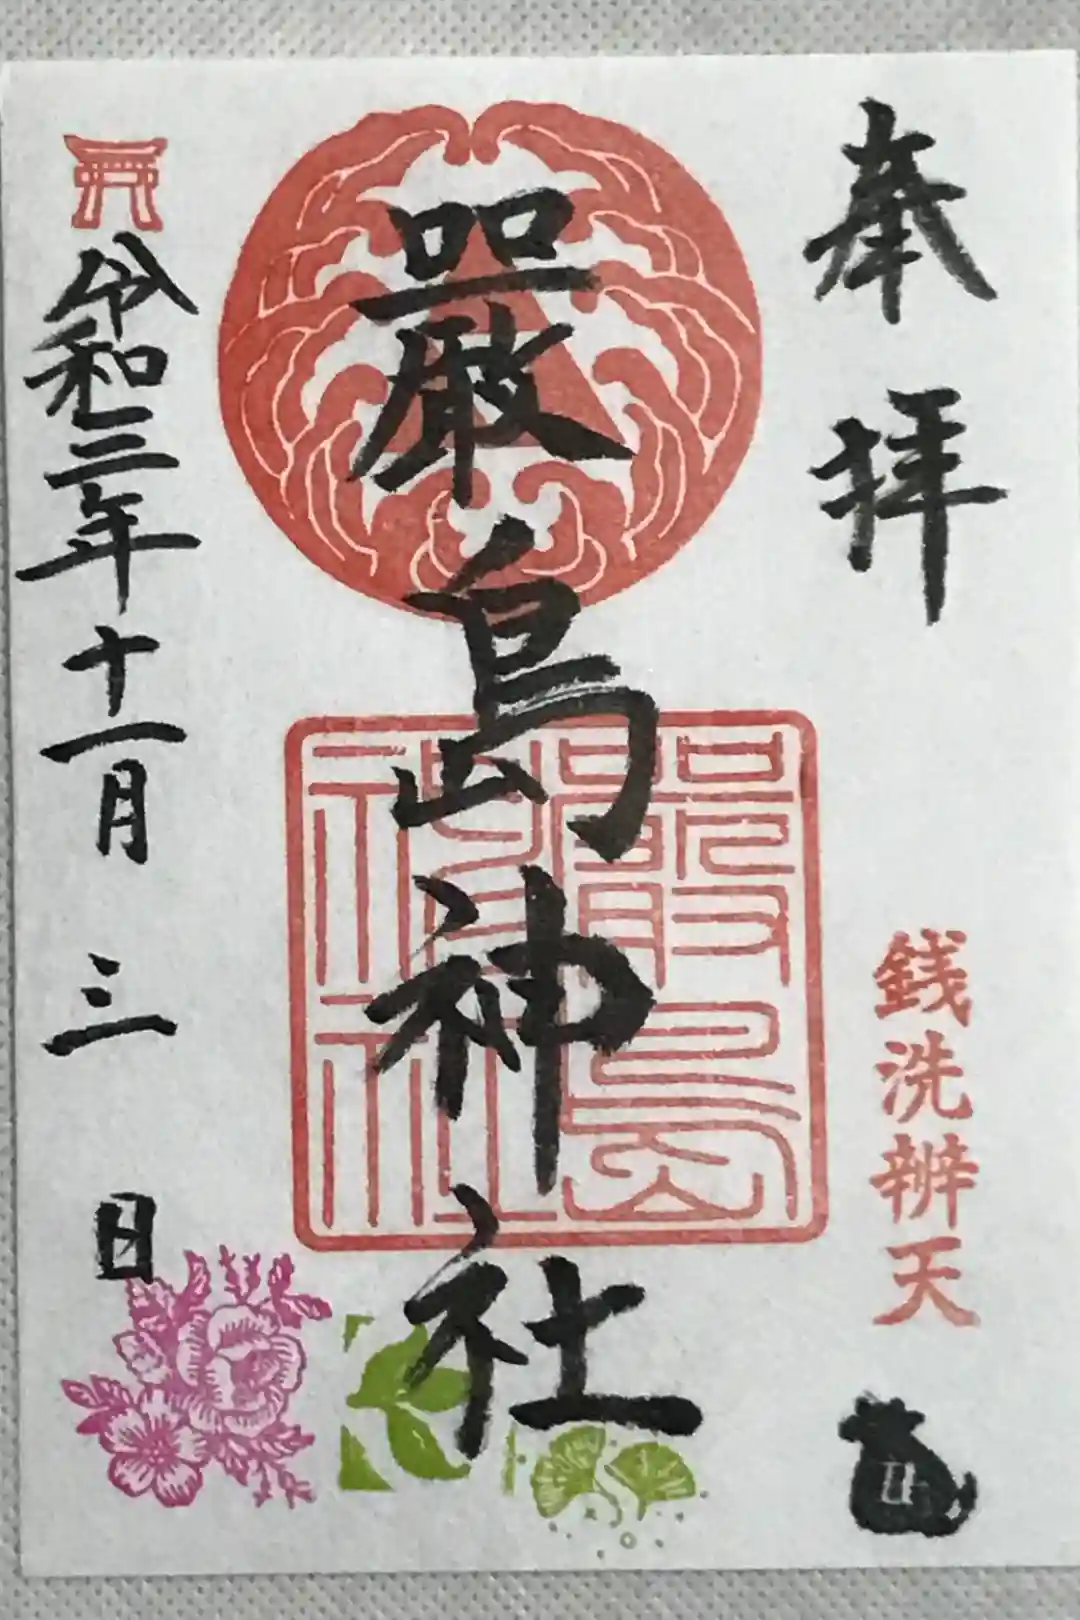 奉拝
銭洗辨天
巖島神社
嚴島神社
令和三年十一月三日